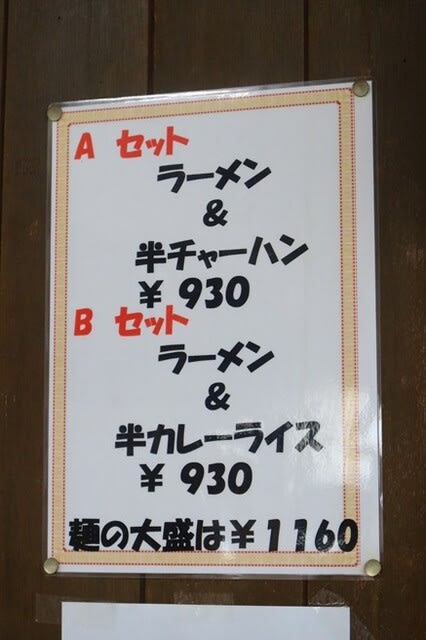 A セット
ラーメン
&
半チャーハン
¥ 930
B セット
ラーメン
&
半カレーライス
¥ 930
麺の大盛は¥1160